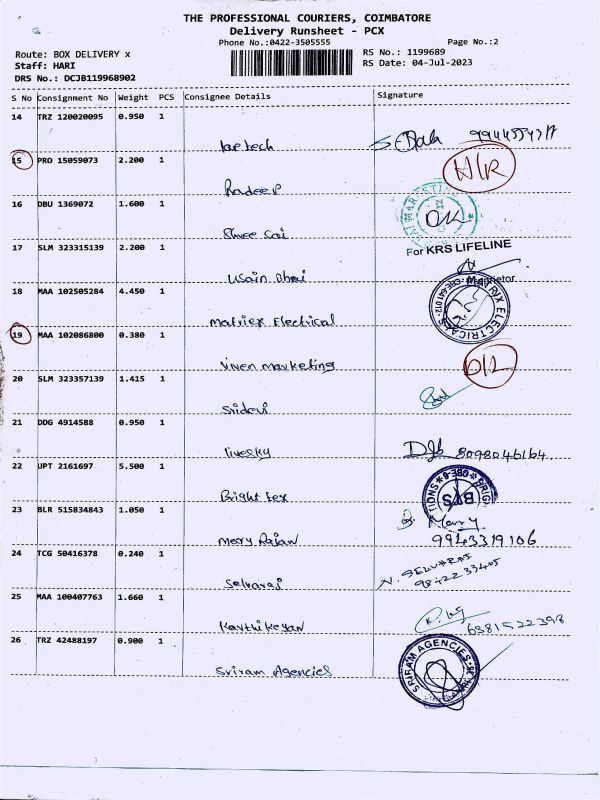 THE PROFESSIONAL COURIERS, COIMBATORE
Delivery Runsheet - PCX
Phone No.:0422-3505555 Page No.:2
Route: BOX DELIVERY x RS No.: 1199689
Staff: HARI RS Date: 04-Jul-2023
DRS No.: DCJB119968902
S No Consignment No Weight PCS Consignee Details Signature
14 TRZ 120020095 0.950 1
15 PRO 15059073 2.200 1
Pradeep
16 DBU 1369072 1.600 1
Shree Sai OK
17 SLM 323315139 2.200 1 For KRS LIFELINE
Usain Bhai Proprietor
18 MAA 102505284 4.450 1
Matriex Electrical MATRIX ELECTRICALS
19 MAA 102086800 0.380 1
Viven marketing
20 SLM 323357139 1.415 1
Sridevi
21 DDG 4914588 0.950 1
livesky 8098046164
22 UPT 2161697 5.500 1
Bright tex BTS
23 BLR 515834843 1.050 1 Mary
mery Rajan 9943319106
24 TCG 50416378 0.240 1
Selvaraj N. SELVARAJ
9842233405
25 MAA 100407763 1.660 1
Karthikeyan 6381522398
26 TRZ 42488197 0.900 1
Sriram Agencies SRIRAM AGENCIES